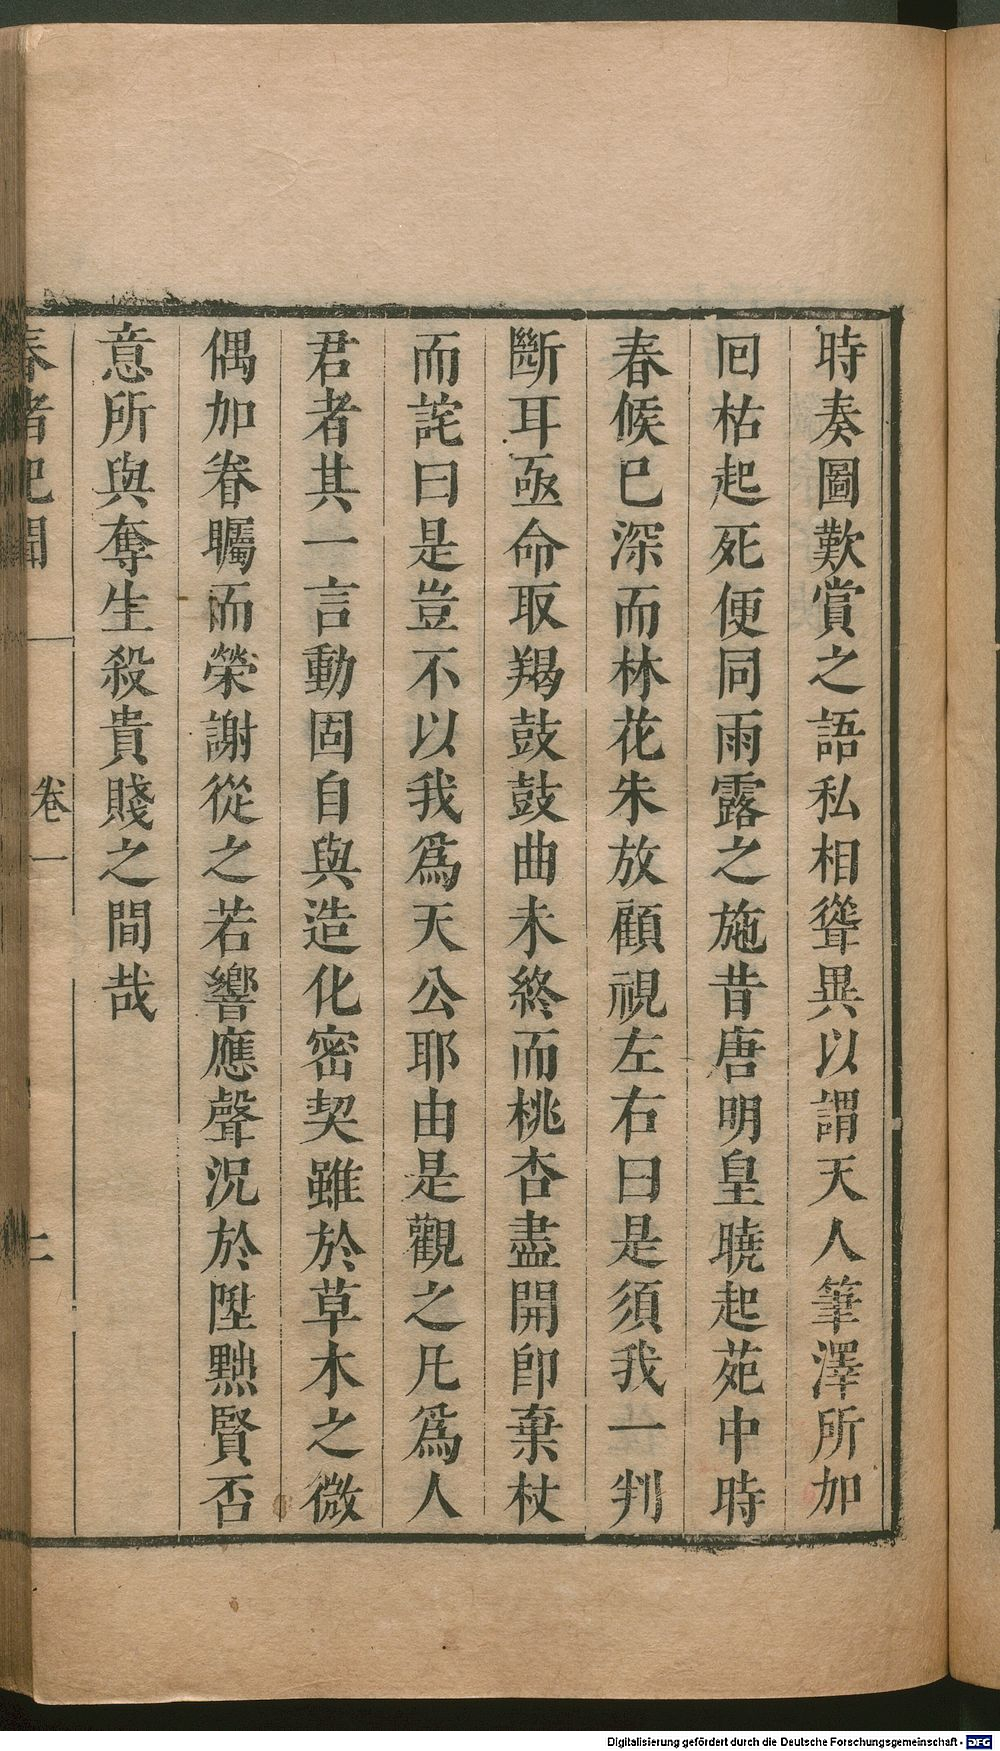 時奏圖歎賞之語私相聳異以謂天人筆澤所加
回枯起死便同雨露之施昔唐明皇曉起苑中時
春候巳深而林花朱放顧視左右曰是須我一判
斷耳亟命取羯鼓鼓曲未終而桃杏盡開卽棄杖
而詫曰是豈不以我爲天公耶由是觀之凡爲人
君者其一言動固自與造化密契雖於草木之微
偶加眷矚而榮謝從之若響應聲況於陞黜賢否
意所與奪生殺貴賤之間哉
春渚紀聞 卷一 二
Digitalisierung gefördert durch die Deutsche Forschungsgemeinschaft - DFG